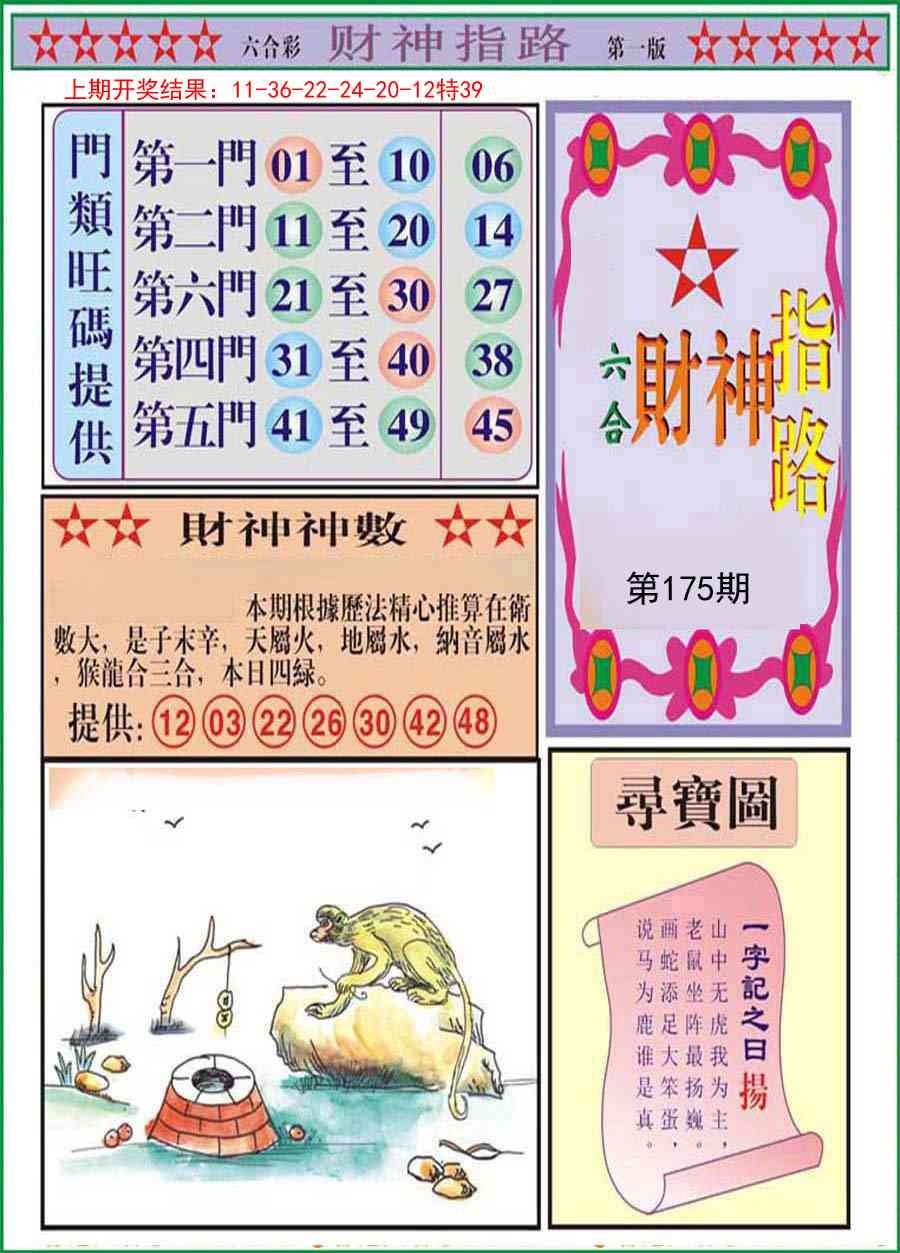 六合彩 财神指路 第一版
上期开奖结果：11-36-22-24-20-12特39
門類旺碼提供
第一門 01 至 10 06
第二門 11 至 20 14
第六門 21 至 30 27
第四門 31 至 40 38
第五門 41 至 49 45
六合
財神
指路
第175期
財神神數
本期根據歷法精心推算在衛
數大，是子末辛，天屬火，地屬水，納音屬水
，猴龍合三合，本日四緑。
提供: 12 03 22 26 30 42 48
尋寶圖
一字記之日 揚
山中无虎我为主，
老鼠坐阵最扬巍，
画蛇添足大笨蛋，
说马为鹿谁是真。